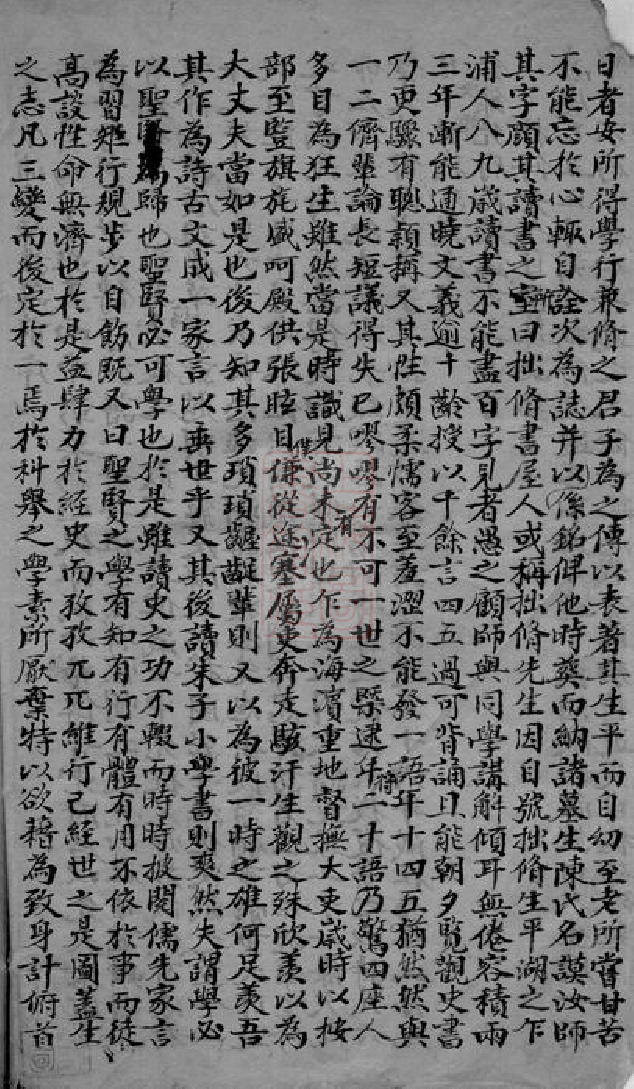 日者毋所得學行兼脩之君子為之傳以表著其生平而自幼至老所嘗甘苦
不能忘於心輒自詮次為誌并以係銘俾他時葬而納諸墓生陳氏名謨汝師
其字顧其讀書之室曰拙脩書屋人或稱拙脩先生因自號拙脩生平湖之乍
浦人八九歲讀書不能盡百字見者愚之顧師與同學講解傾耳無倦容積兩
三年漸能通曉文義逾十齡授以千餘言四五過可背誦且能朝夕覽觀史書
乃更驟有聰穎稱又其性頗柔懦客至羞澀不能發一語年十四五猶然然與
一二儕輩論長短議得失已嘐嘐有不可一世之槩逮年二十語乃驚四座人
多目為狂生雖然當是時識見尚未有定也乍為海濱重地督撫大吏歲時以按
部至豎旗旄盛呵殿供張眩目傔從途塞屬吏奔走駭汗生觀之殊欣羨以為
大丈夫當如是也後乃知其多瑣瑣齷齪輩則又以為彼一時之雄何足羨吾
其作為詩古文成一家言以垂世乎又其後讀朱子小學書則爽然夫謂學必
以聖賢為歸也聖賢必可學也於是雖讀史之功不輟而時時披閱儒先家言
為習矩行規步以自飭既又曰聖賢之學有知有行有體有用不依於事而徒
高談性命無濟也於是益肆力於經史而孜孜兀兀維行己經世之是圖蓋生
之志凡三變而後定於一焉於科舉之學素所厭棄特以欲藉為致身計俯首